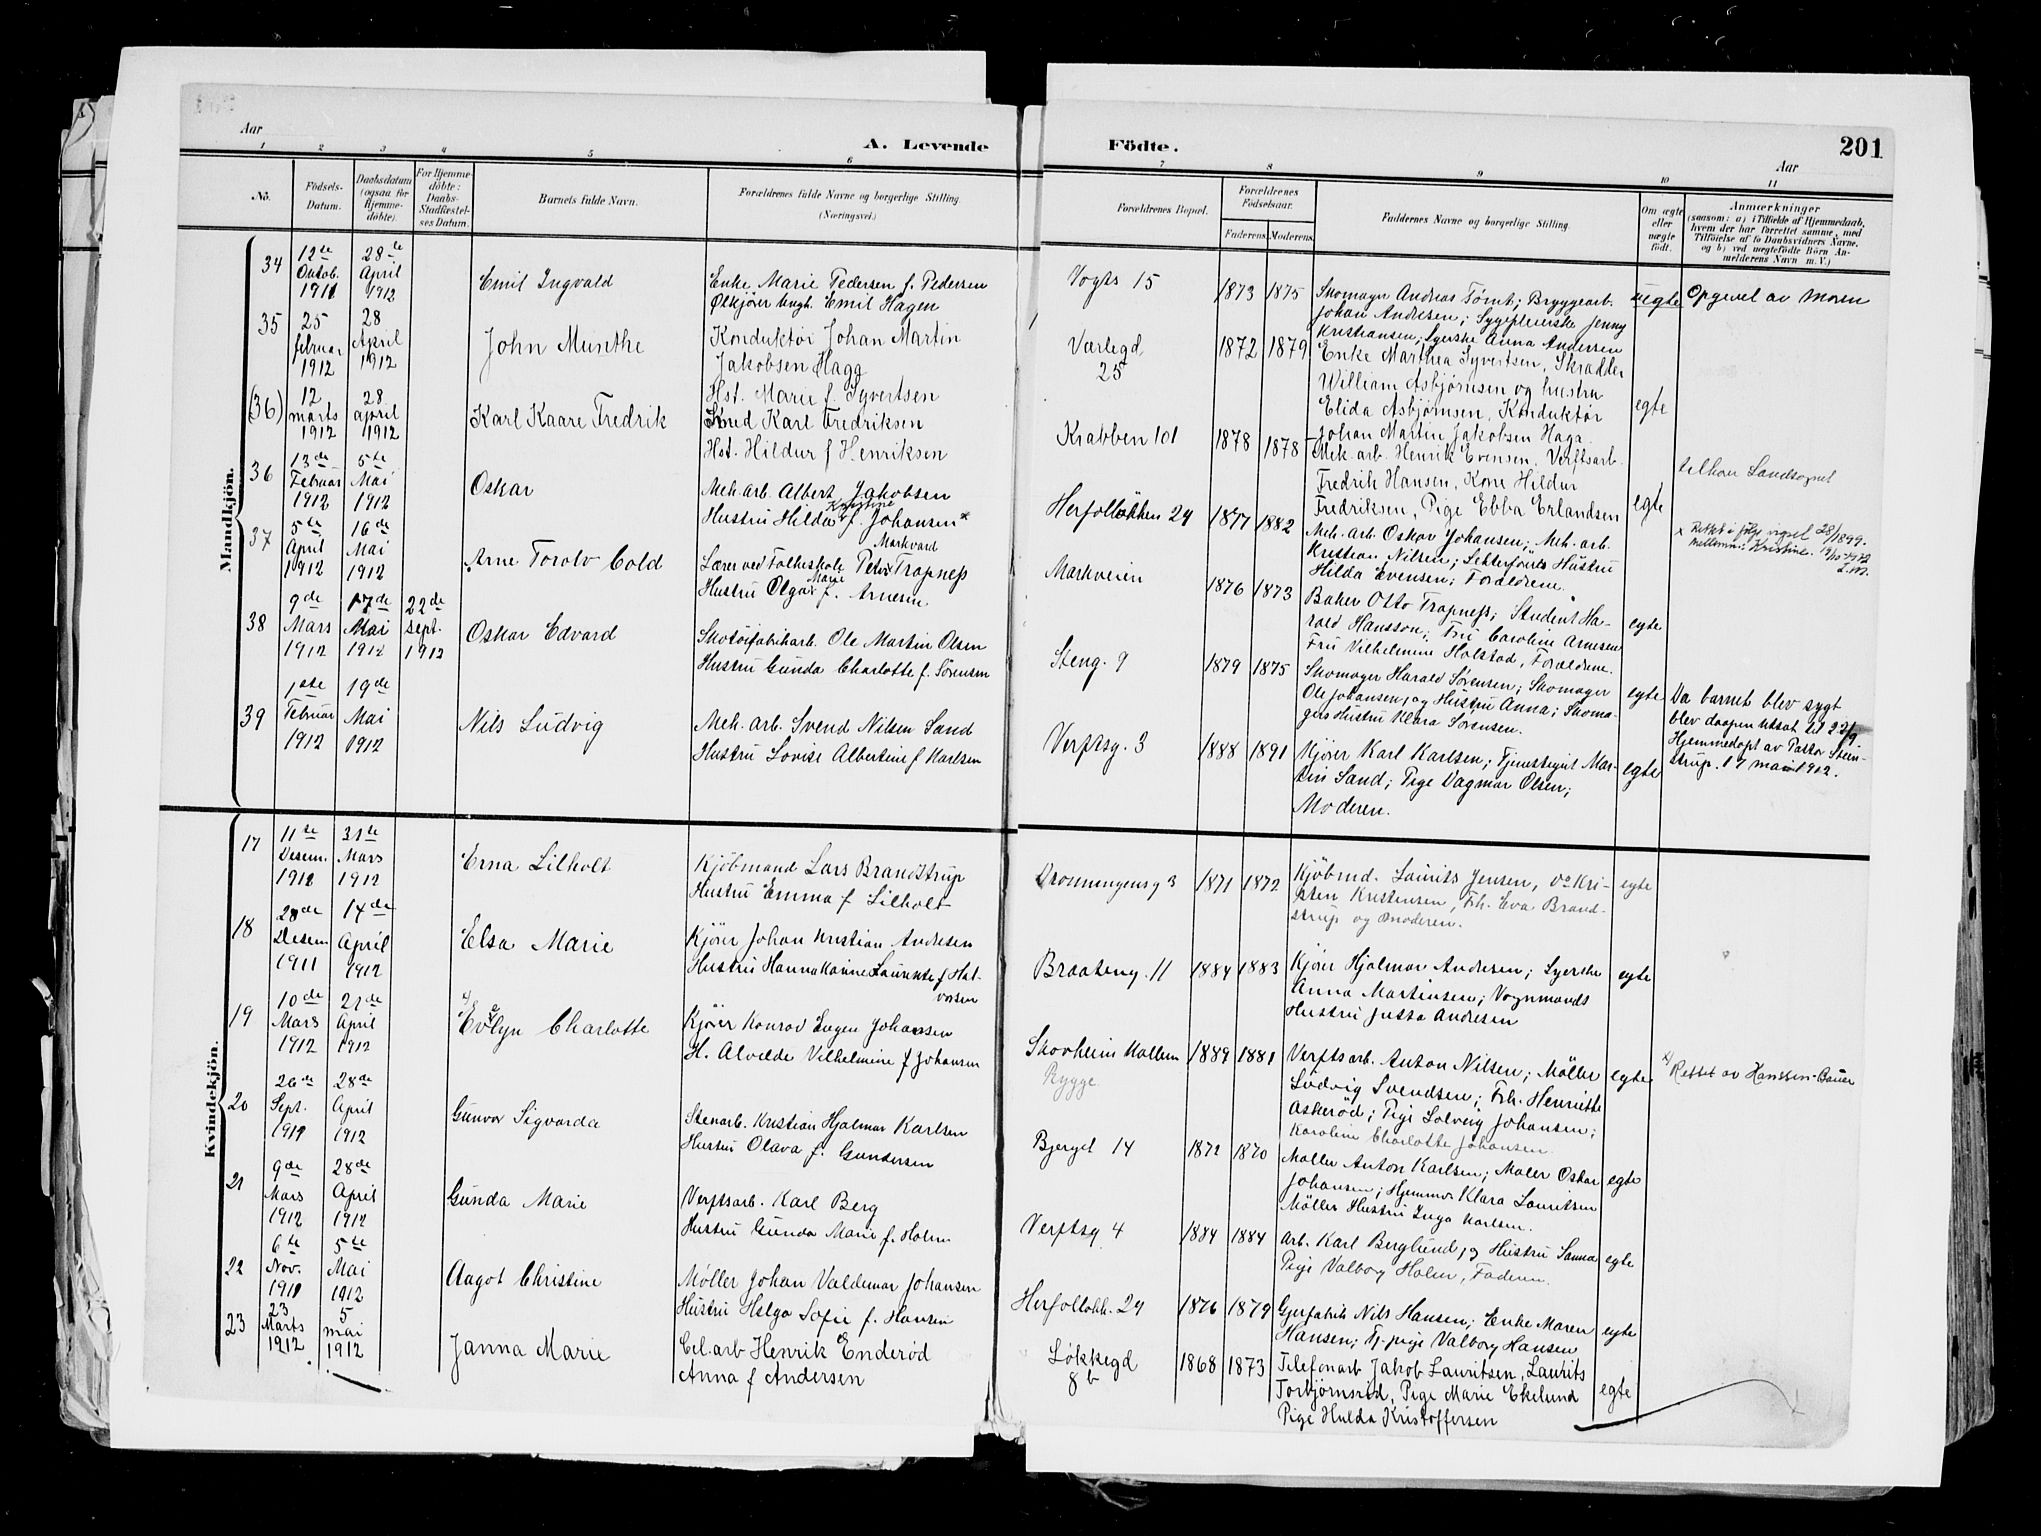 Aar
A. Levende
Födte.
Aar
201
1 2 3 4 5 6 7 8 9 10 11
No.
Födsels-
Datum.
Daabsdatum
(ogsaa for
Hjemme-
döbte).
For Hjemme-
döbte:
Daabs-
Stadfæstel-
ses Datum.
Barnets fulde Navn.
Forældrenes fulde Navne og borgerlige Stilling.
(Næringsvei.)
Forældrenes Bopæl.
Forældrenes
Födselsaar.
Faderens. Moderens.
Faddernes Navne og borgerlige Stilling.
Om ægte
eller
uægte
födt.
Anmærkninger
(saasom: a) i Tilfælde af Hjemmedaab,
hvem der har forrettet samme, med
Tilföielse af to Daabsvidners Navne,
og b) ved uægtefödte Börn An-
melderens Navn m. V.)
Mandkjön.
34
12te
Oktob.
1911
28de
April
1912
Emil Ingvald
Enke Marie Pedersen f. Pedersen
Ølkjører Ungk. Emil Hagen
Vogts 15
1873 1875
Skomager Andreas Tømt; Bryggearb.
Johan Andresen; Sygepleierske Jenny
Kristiansen; Syerske Anna Andersen
uegte
Opgivet av Moren
35
25
februar
1912
28
April
1912
John Munthe
Konduktør Johan Martin
Jakobsen Haga
Hst. Marie f. Syvertsen
Varlegd.
25
1872 1879
Enke Marthea Syvertsen, Skrædder
William Asbjørnsen og hustru
Elida Asbjørnsen, Konduktør
Johan Martin Jakobsen Haga.
egte
(36)
12
marts
1912
28
april
1912
Karl Kaare Fredrik
Smed Karl Fredriksen
Hst. Hildur f Henriksen
Krabben 101
1878 1878
Mek. arb. Henrik Evensen, Verftsarb.
Fredrik Hansen, Kone Hildur
Fredriksen, Pige Ebba Erlandsen
egte
tilhør Landsognet
36
13de
Februar
1912
5te
Mai
1912
Oskar
Mek. arb. Albert Jakobsen
Kristine
Hustru Hilda f. Johansen x
Herfolløkken 24
1877 1882
Mek. arb. Oskar Johansen; Mek. arb.
Kristian Nilsen; Hustru
Hilda Evensen; Forældrene.
x Rettet i følge vigsel 28/1899.
37
5te
April
1912
16de
Mai
1912
Arne Torolv Cold
Markvard
Lærer ved Folkeskole Peter Trapness
Marie
Hustru Olga f. Arnesen
Markveien
1876 1873
Baker Otto Trapness; Student Ha-
rald Hansson; Fru Caroline Arnesen
Fru Vilhelmine Holstad, Forældrene.
egte
38
9de
Mars
1912
17de
Mai
1912
22de
sept.
1912
Oskar Edvard
Skotøifabrikarb. Ole Martin Olsen
Hustru Gunda Charlotte f. Sørensen
Steng. 9
1879 1875
Skomager Harald Sørensen; Skomager
Ole Johansen, og Hustru Anna; Skoma-
gers Hustru Klara Sørensen.
egte
Da barnet blev sygt
blev daapen utsat til 22/9.
Hjemmedøpt av Pastor Steen-
strup. 17 mai 1912.
39
1ste
Februar
1912
19de
Mai
1912
Nils Ludvig
Mek. arb. Svend Nilsen Sand
Hustru Lovise Albertine f Karlsen
Verftsg. 3
1888 1891
Kjører Karl Karlsen; Tjenestegut Mar-
tin Sand; Pige Dagmar Olsen;
Moderen.
egte
Kvindekjön.
17
11te
Desem.
1911
31te
Mars
1912
Erna Lilholt
Kjøbmand Lars Brandstrup
Hustru Emma f Lilholt
Dronningensg 3
1871 1872
Kjøbmd. Laurits Jensen, Do Kri-
sten Kristensen, Frk. Eva Brand-
strup og Moderen.
egte
18
28de
Desem
1911
14de
April
1912
Elsa Marie
Kjører Johan Kristian Andresen
Hustru Hanna Karine Laurense f Hal-
vorsen
Braateng. 11
1884 1883
Kjører Hjalmar Andresen; Syerske
Anna Martinsen; Vognmands
Hustru Jutta Andresen
egte
19
10de
Mars
1912
21de
April
1912
x) Evelyn Charlotte
Kjører Konrad Eugen Johansen
H. Alvilde Vilhelmine f Johansen
Skovheim Mallum
Rygge
1889 1881
Verftsarb. Anton Nilsen; Møller
Ludvig Svendsen; Frk. Henriette
Askerød; Pige Solveig Johansen;
Karoline Charlotte Johansen.
egte
x) Rettet av Hanssen-Bauer
20
26de
Sept.
1911
28de
April
1912
Gunvor Sigvarda
Stenarb. Kristian Hjalmar Karlsen
Hustru Olava f. Gundersen
Bjerget 14
1872 1870
Møller Anton Karlsen; Maler Oskar
Johansen; Hjemmev. Klara Lauritsen
Møller Hustru Inga Karlsen.
egte
21
9de
Mars
1912
28de
April
1912
Gunda Marie
Verftsarb. Karl Berg
Hustru Gunda Marie f. Holm
Verftsg 4
1884 1884
Arb. Karl Berglund og Hustru Sanna
Pige Valborg Holm, Faderen.
egte
22
6te
Nov.
1911
5te
Mai
1912
Aagot Christine
Møller Johan Valdemar Johansen
Hustru Helga Sofie f. Hansen
Herfolløkk. 24
1876 1879
Gjerfabrik Nils Hansen; Enke Maren
Hansen; Tj. pige Valborg Hansen
egte
23
23
Marts
1912
5
mai
1912
Janna Marie
Cel. arb Henrik Enderød
Anna f Andersen
Løkkegd
8b
1868 1873
Telefonarb Jakob Lauritsen, Laurits
Torbjørnsrød, Pige Marie Ekelund
Pige Hulda Kristoffersen
egte